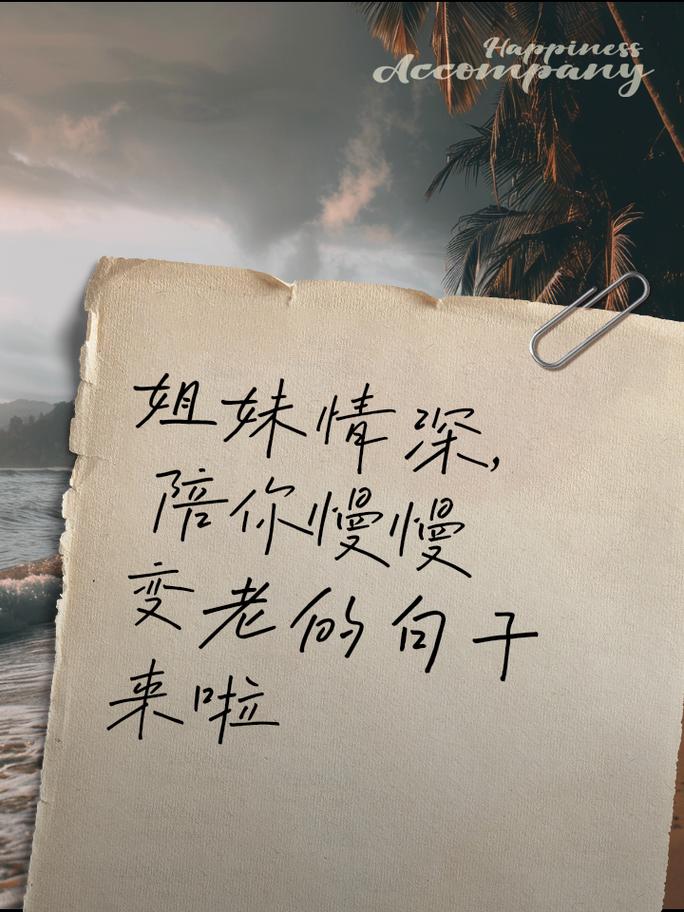 Happiness
Accompany
姐妹情深,
陪你慢慢
变老的句子
来啦